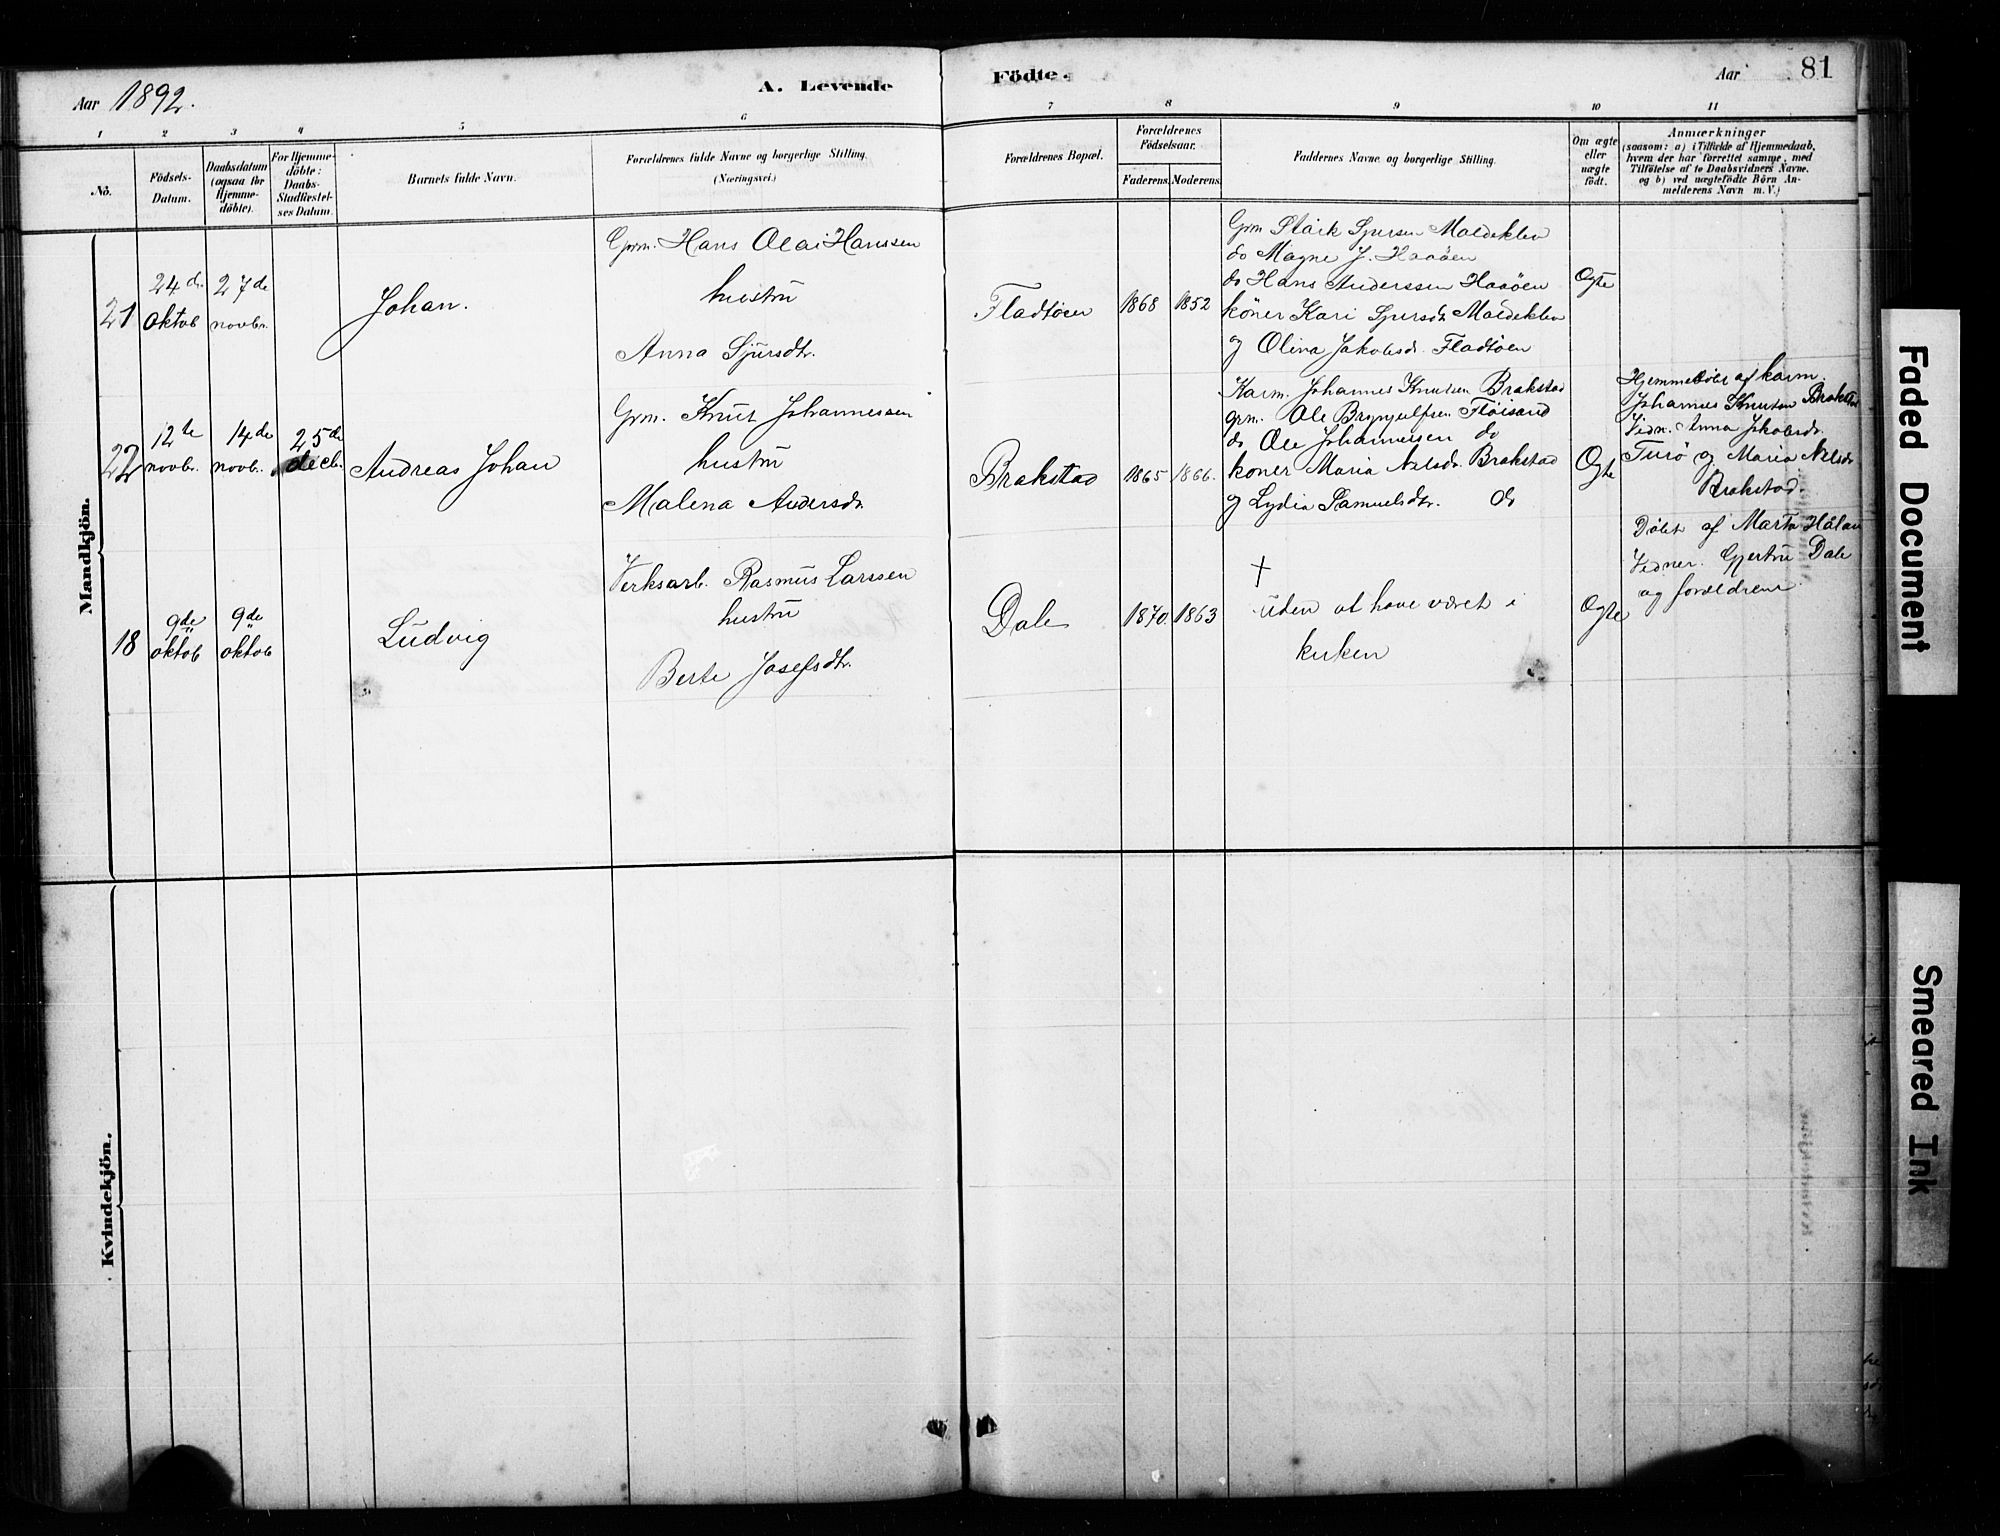 Aar 1892.
A. Levende
Födte.
Aar
81
1
2
3
4
5
6
7
8
9
10
11
No.
Födsels-
Datum.
Daabsdatum
(ogsaa for
Hjemme-
döbte).
For Hjemme-
döbte:
Daabs-
Stadfæstel-
ses Datum.
Barnets fulde Navn.
Forældrenes fulde Navne og borgerlige Stilling.
(Næringsvei.)
Forældrenes Bopæl.
Forældrenes
Födselsaar.
Faderens.
Moderens.
Faddernes Navne og borgerlige Stilling.
Om ægte
eller
uægte
födt.
Anmærkninger
(saasom: a) i Tilfælde af Hjemmedaab,
hvem der har forrettet samme, med
Tilföielse af to Daabsvidners Navne,
og b) ved uægtefödte Börn An-
melderens Navn m.V.)
Mandkjön.
21
24de
oktob
27de
novbr.
Johan.
Grm. Hans Olai Hanssen
hustru
Anna Sjursdtr.
Fladtøen
1868
1852
Grm Stark Sjursen Moldeklev
do Magne J. Haaøen
do Hans Anderssen Haaøen
koner Kari Sjursdr Moldeklev
og Olina Jakobsdr. Fladtøen
Ogte
22
12te
novbr.
14de
novb.
25de
decb.
Andreas Johan
Grm. Knut Johannessen
hustru
Malena Andersdr.
Brakstad
1865
1866.
Karm. Johannes Knutsen Brakstad
grm. Ole Brynjulfsen Fløisand
do Ole Johannessen do
koner Maria Nilsdr. Brakstad
og Lydia Samuelsdtr. do
Ogte
Hjemmedøbt af karm.
Johannes Knutsen Brakstad
Vidn. Anna Jakobsdr.
Turø og Maria Nilsdr
Brakstad.
18
9de
oktob
9de
oktob
Ludvig
Verksarb. Rasmus Larssen
hustru
Berte Josefsdtr.
Dale
1870.
1863
†
uden at have været i
kirken
Ogte
Døbt af Marta
Vidner. Gjertru Dale
og forældrene
Kvindekjön.
Faded Document
Smeared Ink